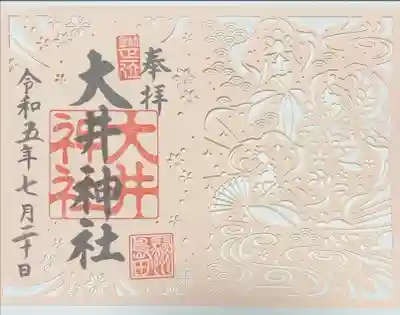 奉拝
大井神社
大井
神社
令和五年七月二十日